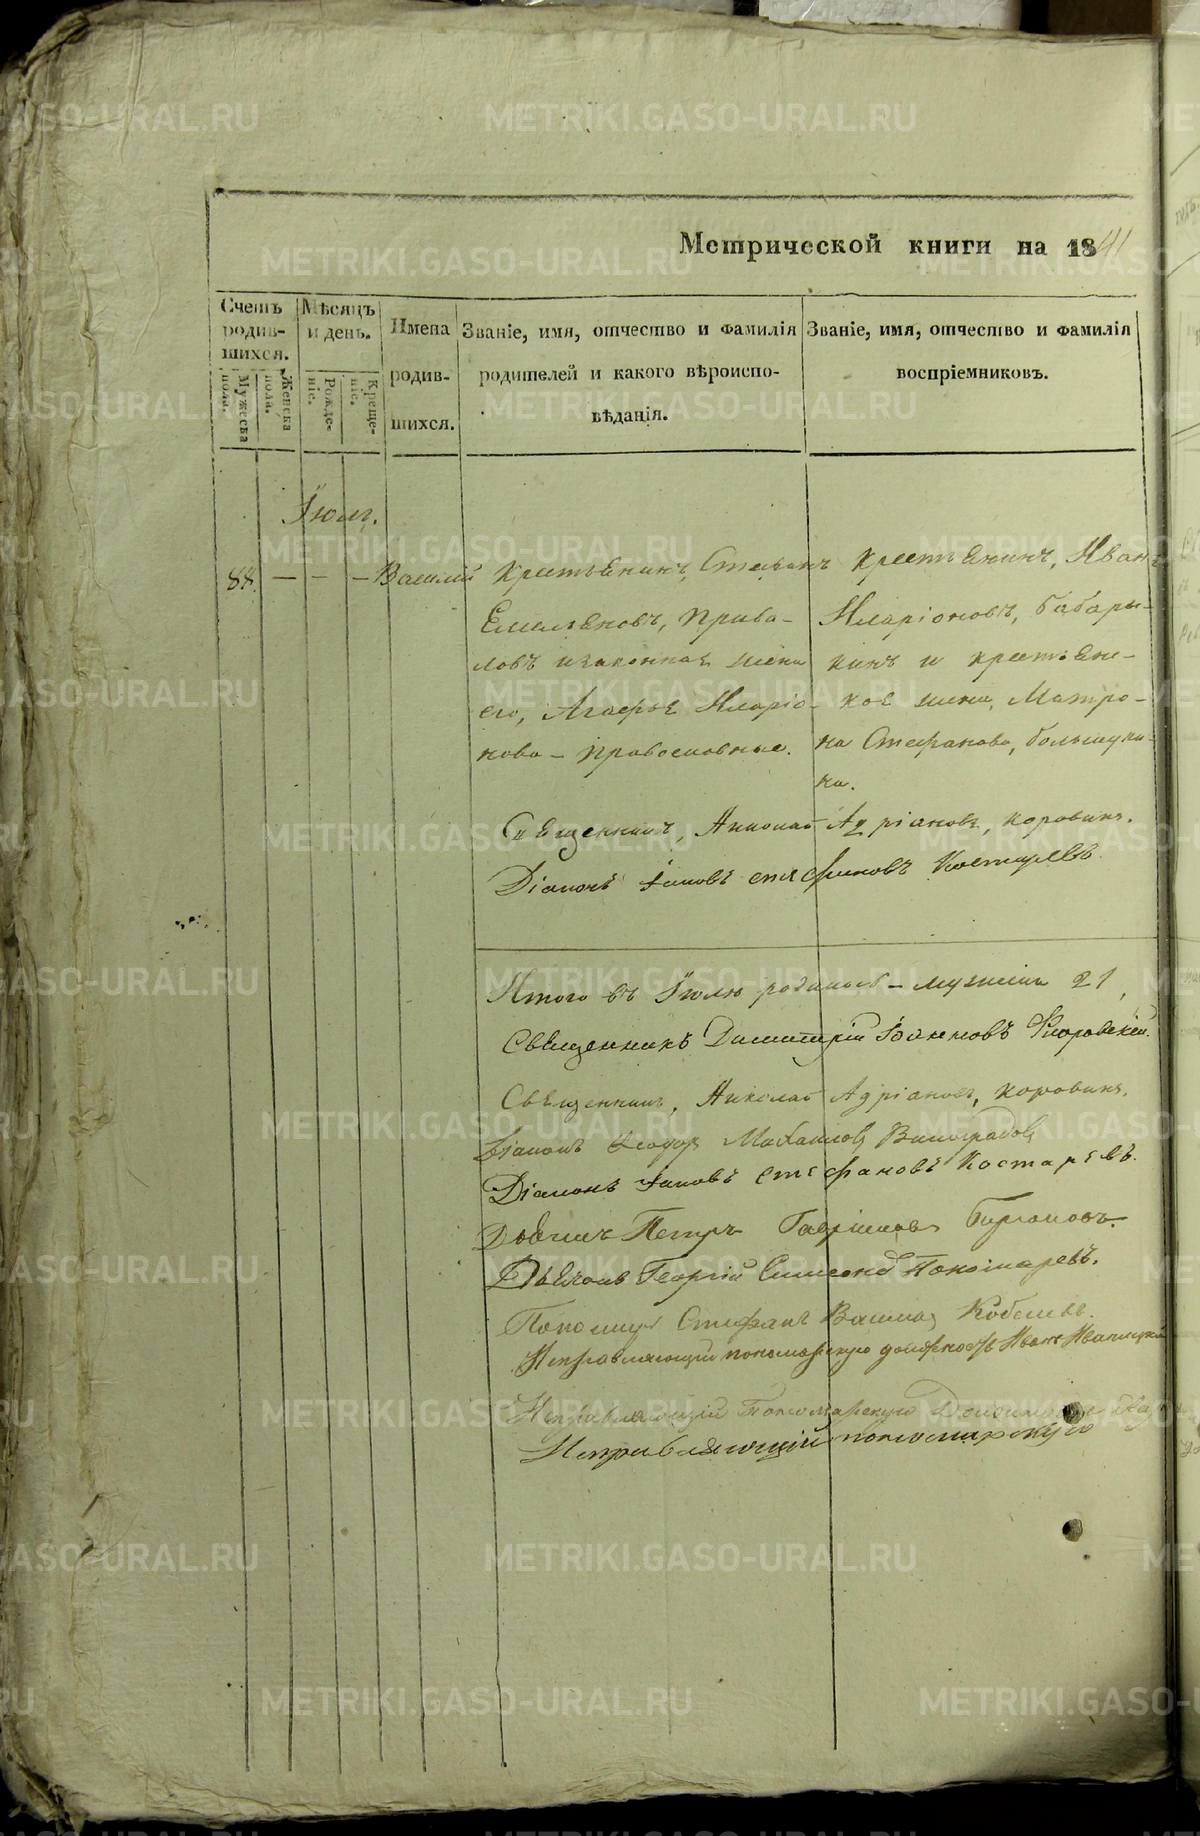 Метрической книги на 1841
Счетъ родившихся.
Мужеска пола.
Женска пола.
Мѣсяцъ и день.
Рожденіе.
Крещеніе.
Имена родившихся.
Званіе, имя, отчество и фамилія
родителей и какого вѣроиспо-
вѣданія.
Званіе, имя, отчество и фамилія
воспріемниковъ.
Іюль.
88. — — — Василій
Крестьянинъ, Стефанъ
Емельяновъ, Прива-
ловъ и законная жена
его, Агафья Иларіо-
нова — православные.
Крестьянинъ, Иванъ
Иларіоновъ, Бабары-
кинъ и крестьян-
ская жена, Матро-
на Стефанова, Большуки-
на.
Священникъ, Николай Адріановъ, Коровинъ.
Діаконъ Іаковъ Стефановъ Костаревъ
Итого въ Іюлѣ родилось — мужеска 21,
Священникъ Димитрій Іоанновъ Флоровскій.
Священникъ, Николай Адріановъ, Коровинъ.
Діаконъ Ѳеодоръ Михайловъ Виноградовъ
Діаконъ Іаковъ Стефановъ Костаревъ.
Дьячекъ Петръ Гавріиловъ
Дьячокъ Георгій Симеоновъ Пономаревъ.
Пономарь Стефанъ Кобелевъ.
Исправляющій пономарскую должность Иванъ
Исправляющій Пономарскую Должность
Исправляющій пономарскую
METRIKI.GASO-URAL.RU